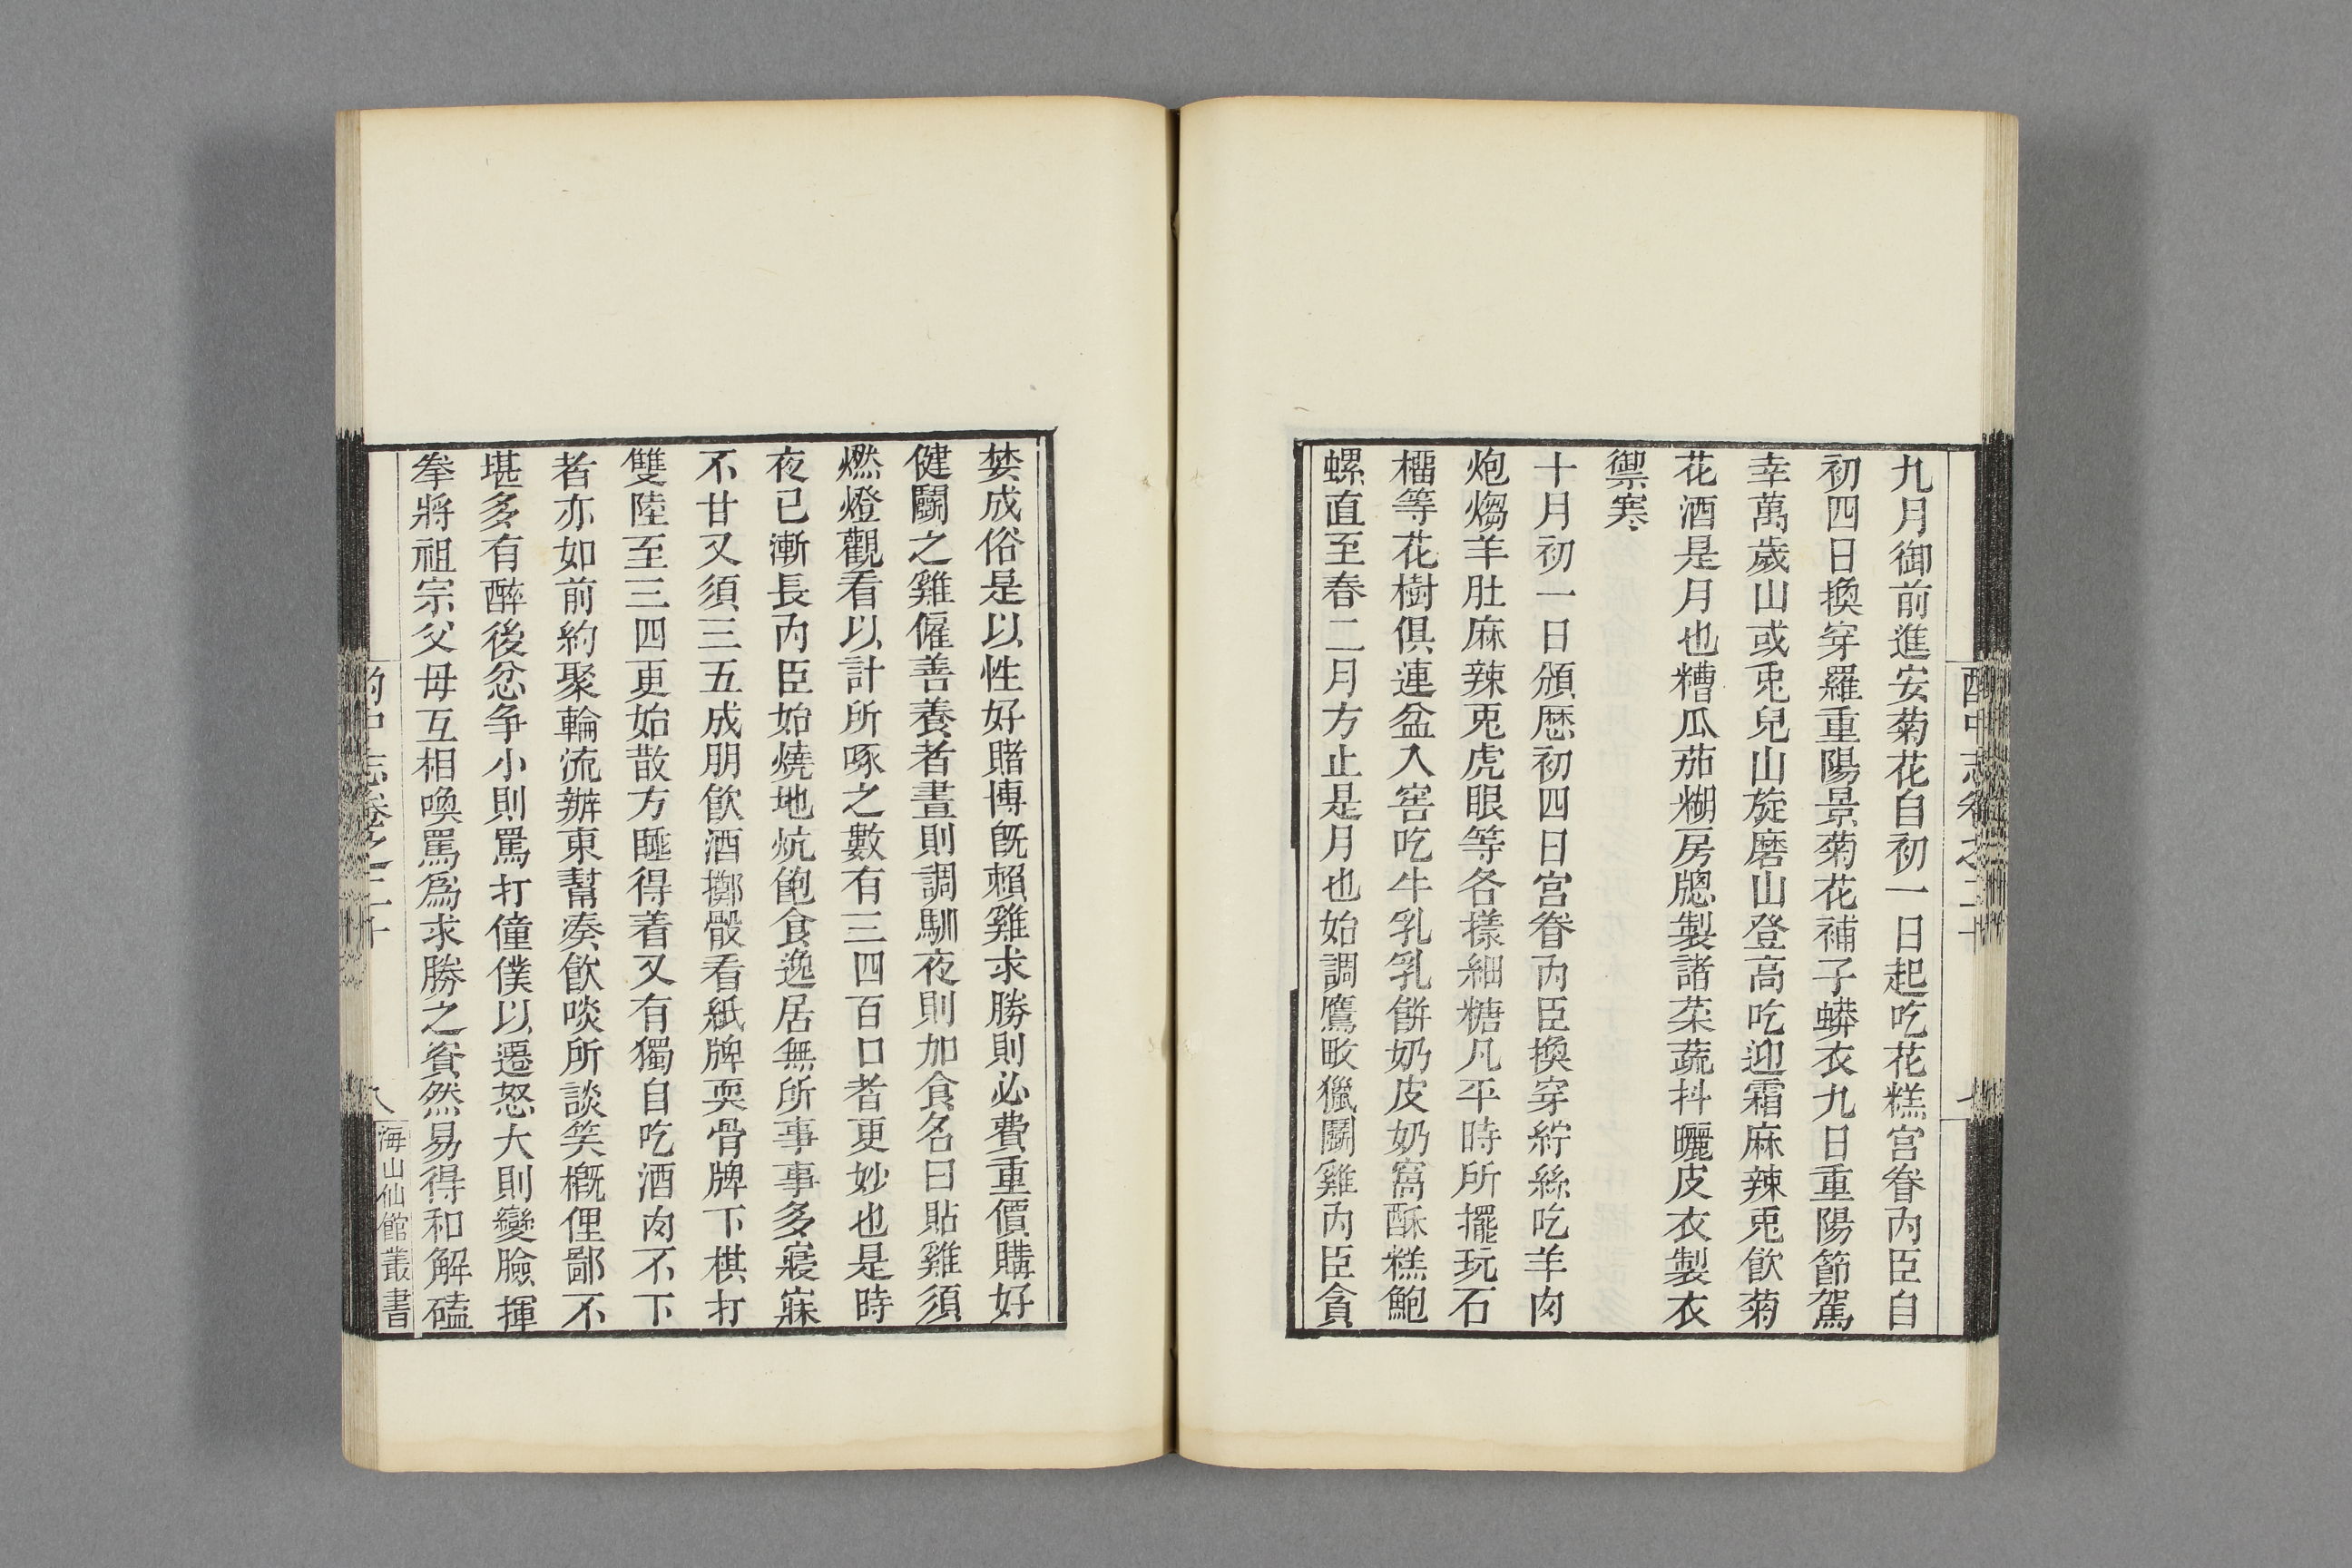 酌中志卷之二十
七
九月御前進安菊花自初一日起吃花糕宮眷內臣自
初四日換穿羅重陽景菊花補子蟒衣九日重陽節駕
幸萬歲山或兎兒山旋磨山登高吃迎霜麻辣兎飮菊
花酒是月也糟瓜茄糊房牕製諸菜蔬抖曬皮衣製衣
禦寒
十月初一日頒歷初四日宮眷內臣換穿紵絲吃羊肉
炮煼羊肚麻辣兎虎眼等各樣細糖凡平時所擺玩石
榴等花樹俱連盆入窖吃牛乳乳餅奶皮奶窩酥糕鮑
螺直至春二月方止是月也始調鷹畋獵鬭雞內臣貪
婪成俗是以性好賭博旣賴雞求勝則必費重價購好
健鬭之雞僱善養者晝則調馴夜則加食名曰貼雞須
燃燈觀看以計所啄之數有三四百口者更妙也是時
夜已漸長內臣始燒地炕飽食逸居無所事事多寢寐
不甘又須三五成朋飮酒擲骰看紙牌耍骨牌下棋打
雙陸至三四更始散方睡得着又有獨自吃酒肉不下
者亦如前約聚輪流辦東幫凑飮啖所談笑槪俚鄙不
堪多有醉後忿争小則罵打僮僕以遷怒大則變臉揮
拳將祖宗父母互相喚罵爲求勝之資然易得和解磕
酌中志卷之二十
八
海山仙館叢書